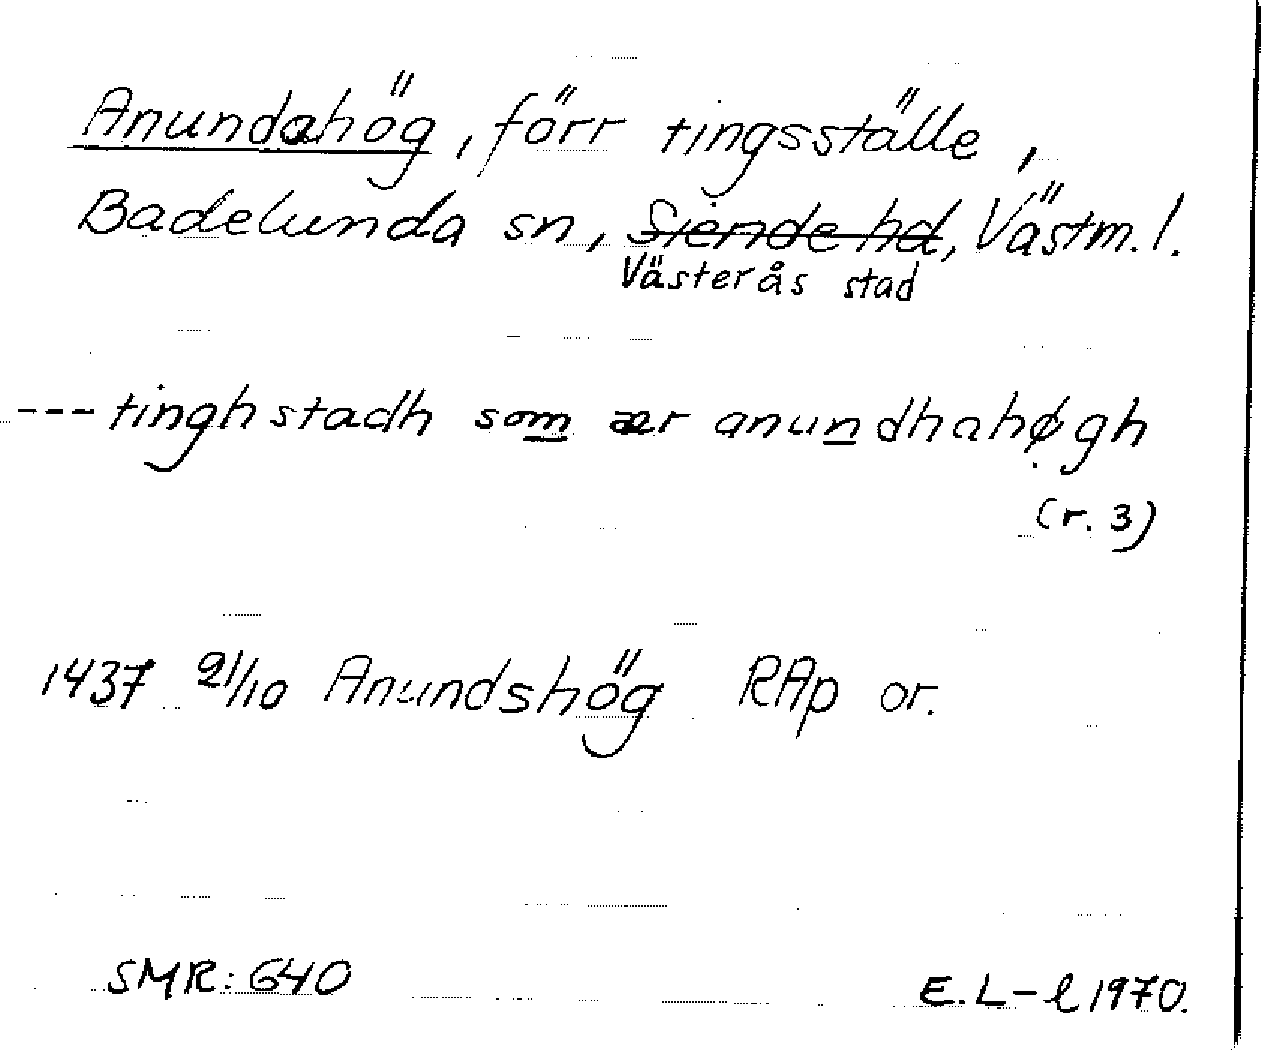 Anundahög, förr tingsställe,
Badelunda sn, Siende hd, Västm. l.
Västerås stad
--- tinghstadh som ær anundhahøgh
(r. 3)
1437 21/10 Anundshög RAp or.
SMR: 640
E. L-l 1970.